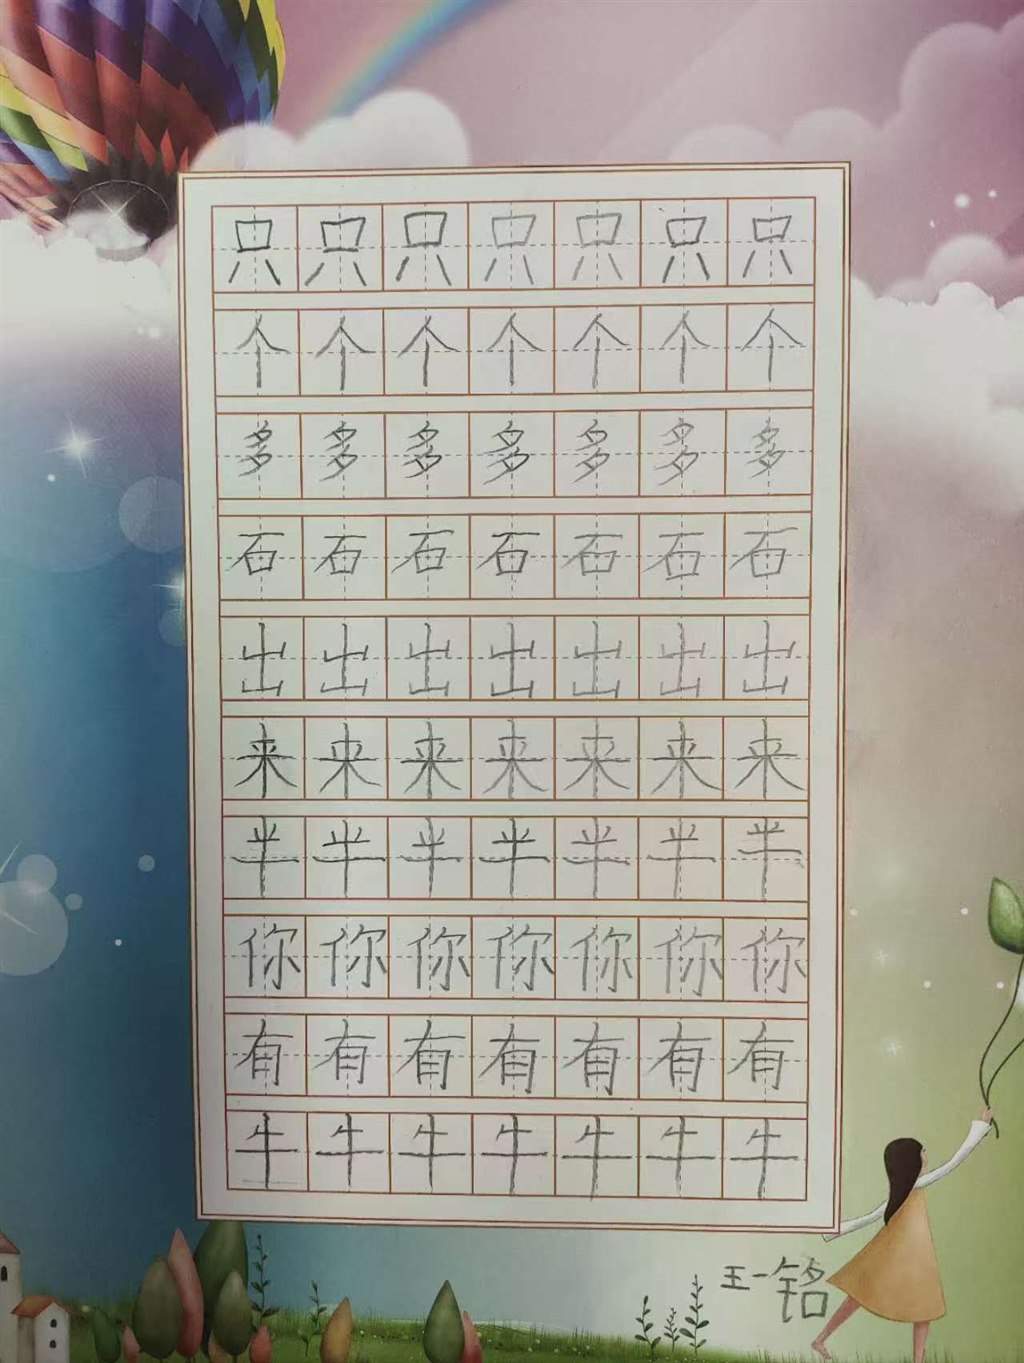 只只只只只只只
个个个个个个个
多多多多多多多
石石石石石石石
出出出出出出出
来来来来来来来
半半半半半半半
你你你你你你你
有有有有有有有
牛牛牛牛牛牛牛
王一铭